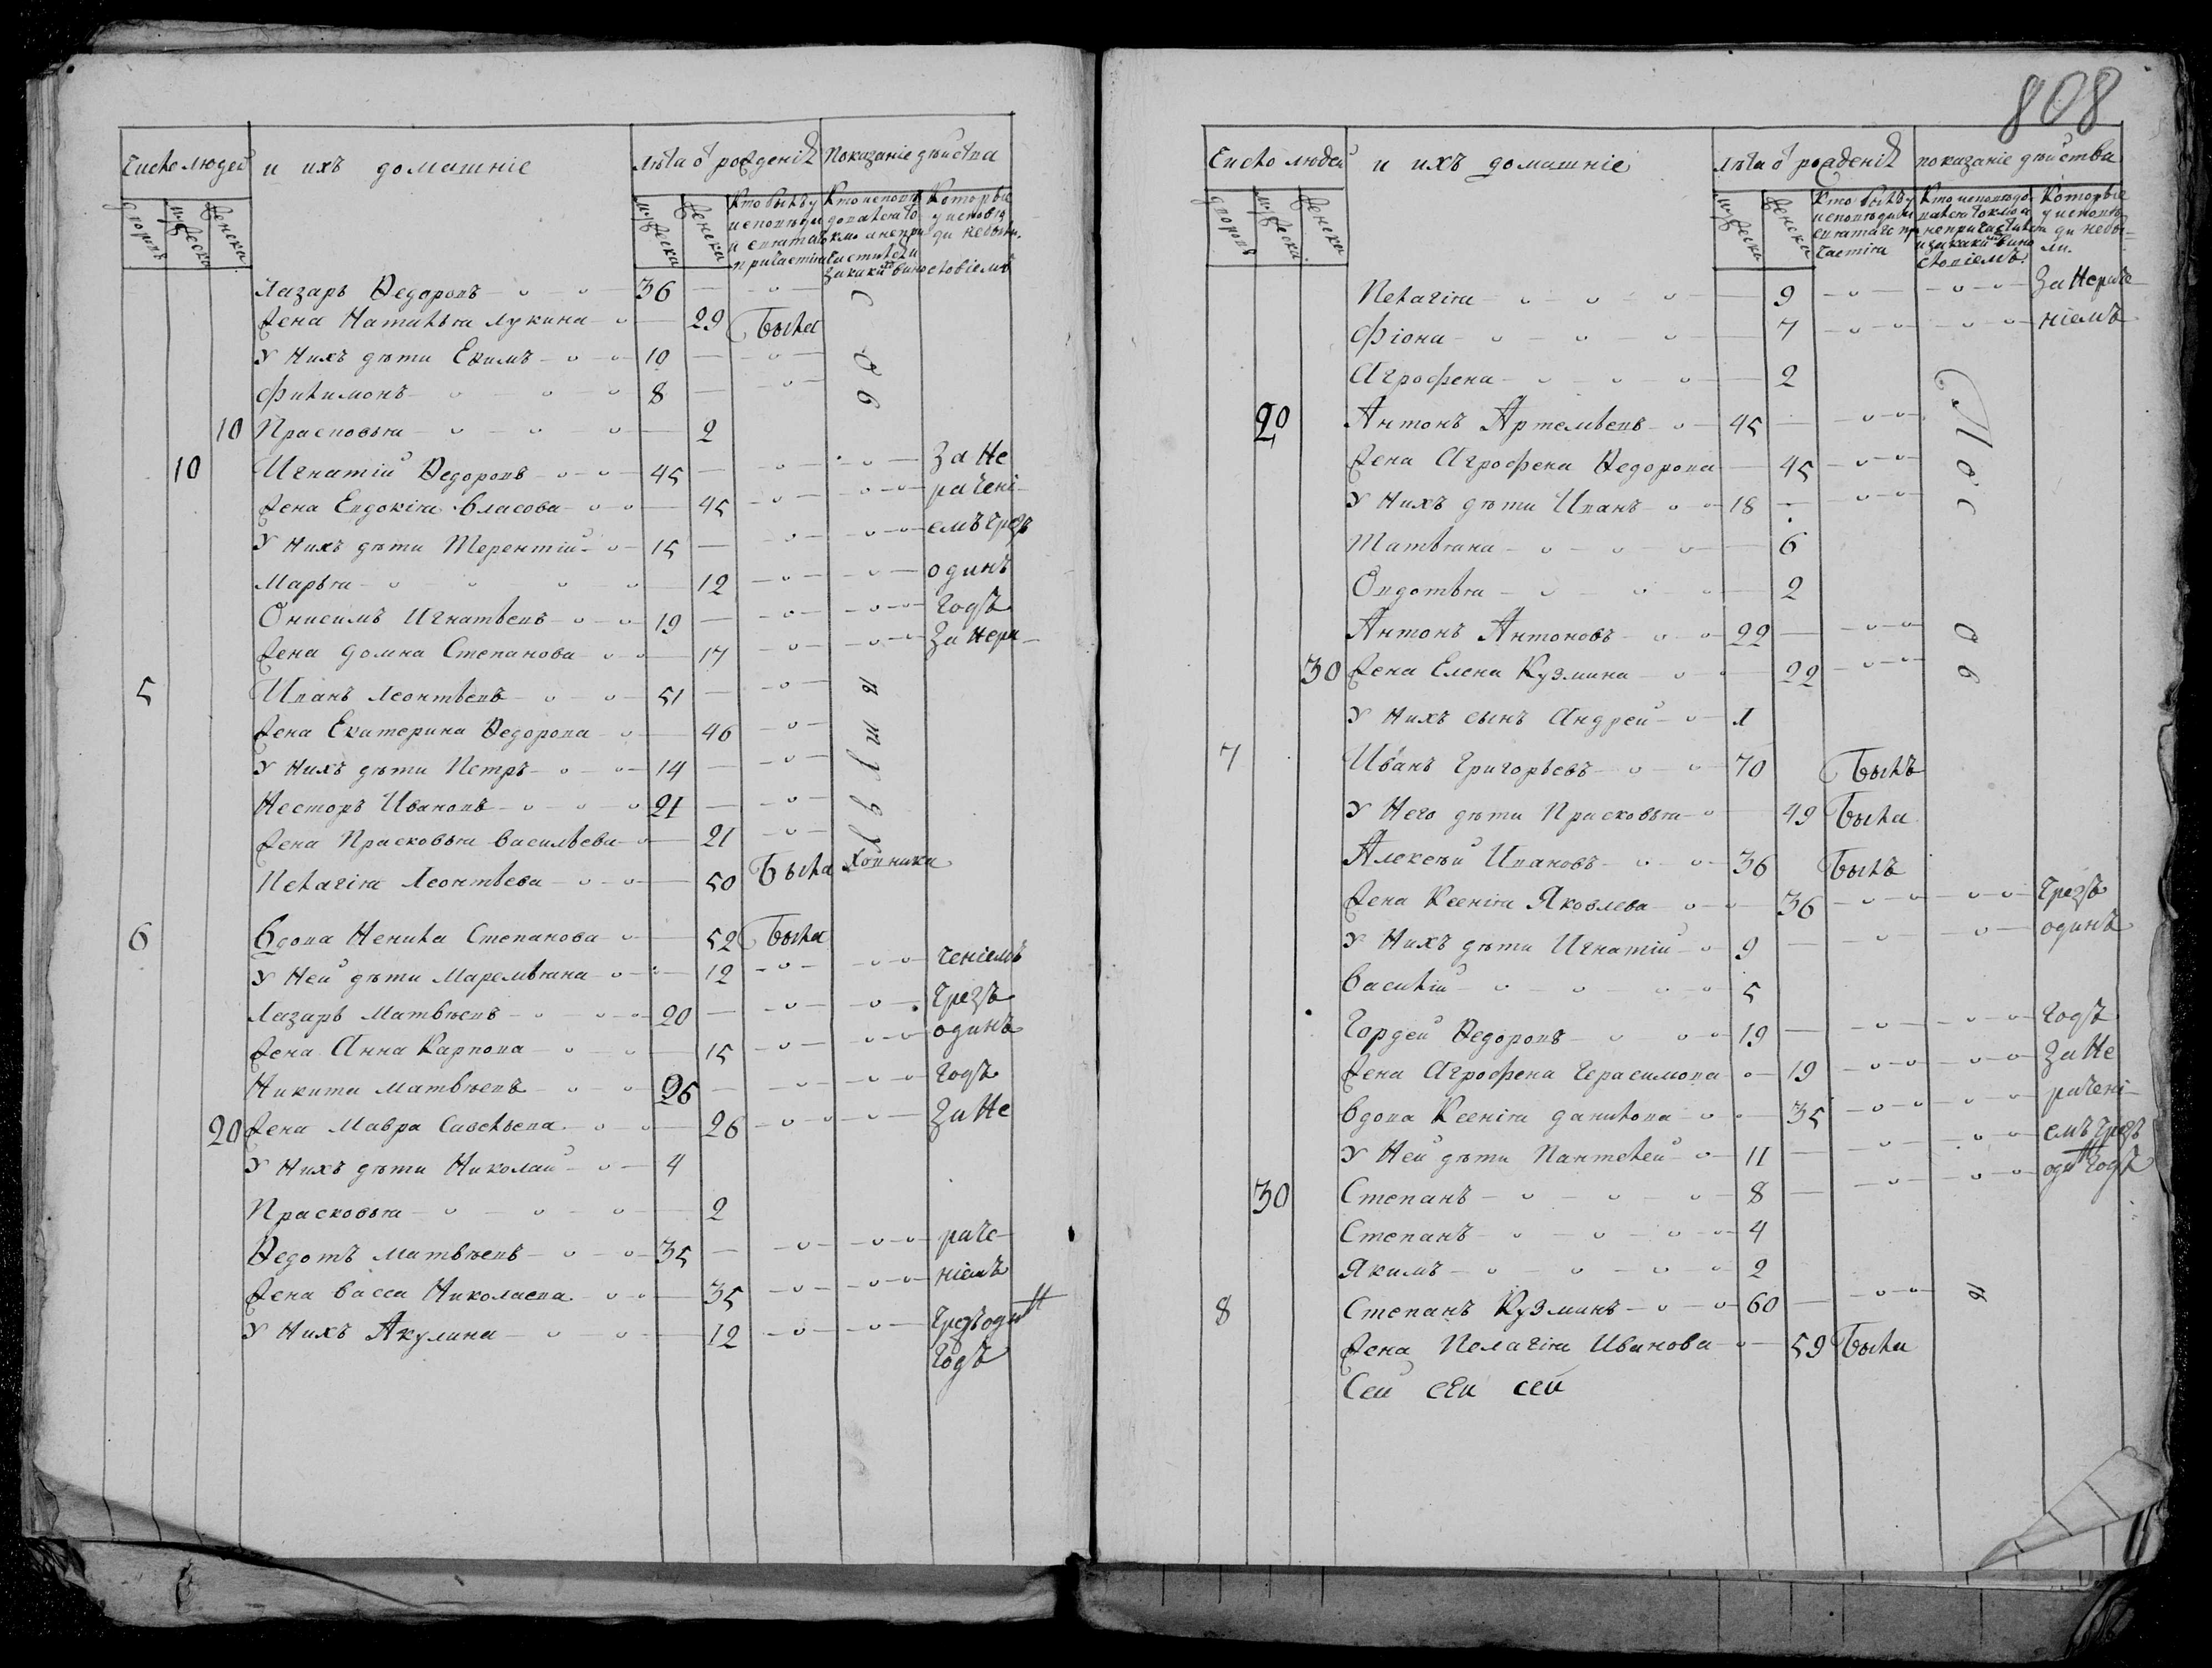 Число людей и ихъ домашнiе Лѣта ѿ рожденiѧ Показанiе дѣиства
дворовъ мужеска женска мужеска женска Кто былъ у исповѣди и святаго причастiя Кто исповѣдовался токмо а не причастился и за какимъ винословiемъ Которые у исповѣди небыли
Лазарь Ѳедоровъ 36
Жена Наталья Лукина 29 Была
У Нихъ дѣти Екимъ 10
Филимонъ 8
10 Прасковья 2
10 Игнатiй Ѳедоровъ 45 За Не
Жена Евдокiя Власова 45 раченi
У Нихъ дѣти Терентiй 15 емъ чрезъ
Марья 12 одинъ
Онисимъ Игнатьевъ 19 Годъ
Жена Домна Степанова 17 За Нера
5 Иванъ Леонтьевъ 51
Жена Екатерина Ѳедорова 46
У Нихъ дѣти Петръ 14
Несторъ Ивановъ 21
Жена Прасковья Васильева 21
Пелагiя Леонтьева 50 Была
6 Вдова Ненила Степанова 52 Была
У Ней дѣти Маремьяна 12 ченiемъ
Лазарь Матвѣевъ 20 Чрезъ
Жена Анна Карпова 15 одинъ
Никита Матвѣевъ 26 Годъ
20 Жена Мавра Савельева 26 За Не
У Нихъ дѣти Николай 4
Прасковья 2
Ѳедотъ Матвѣевъ 35 раче
Жена Васса Николаева 35 нiемъ
У Нихъ Акулина 12 Чрезъ одинъ
Годъ
808
Число людей и ихъ домашнiе Лѣта ѿ рожденiѧ показанiе дѣиства
дворовъ мужеска женска мужеска женска Кто былъ у исповѣди и святаго причастiя Кто исповѣдовался токмо а непричастился и за какимъ винословiемъ. Которые у исповѣди небыли.
Пелагiя 9 За Нераче
Фiона 7 нiемъ
Агрофена 2
20 Антонъ Артемьевъ 45
Жена Агрофена Ѳедорова 45
У Нихъ дѣти Иванъ 18
Татьяна 6
Овдотья 2
Антонъ Антоновъ 22
30 Жена Елена Кузмина 22
У Нихъ сынъ Андрей 1
7 Иванъ Григорьевъ 70 Былъ
У Него дѣти Прасковья 49 Была
Алексѣй Ивановъ 36 Былъ
Жена Ксенiя Яковлева 36 Чрезъ
У Нихъ дѣти Игнатiй 9 одинъ
Василiй 5
Гордей Ѳедоровъ 19 Годъ
Жена Агрофена Герасимова 19 За Не
Вдова Ксенiя Данилова 35 раченi
У Ней дѣти Пантелей 11 емъ чрезъ
30 Степанъ 8 одинъ Годъ
Степанъ 4
Якимъ 2
8 Степанъ Кузминъ 60
Жена Пелагiя Иванова 59 Была
Сей сеи сей